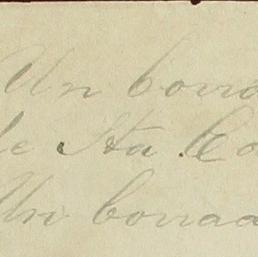 Un borra
de Sta Co
Un borra